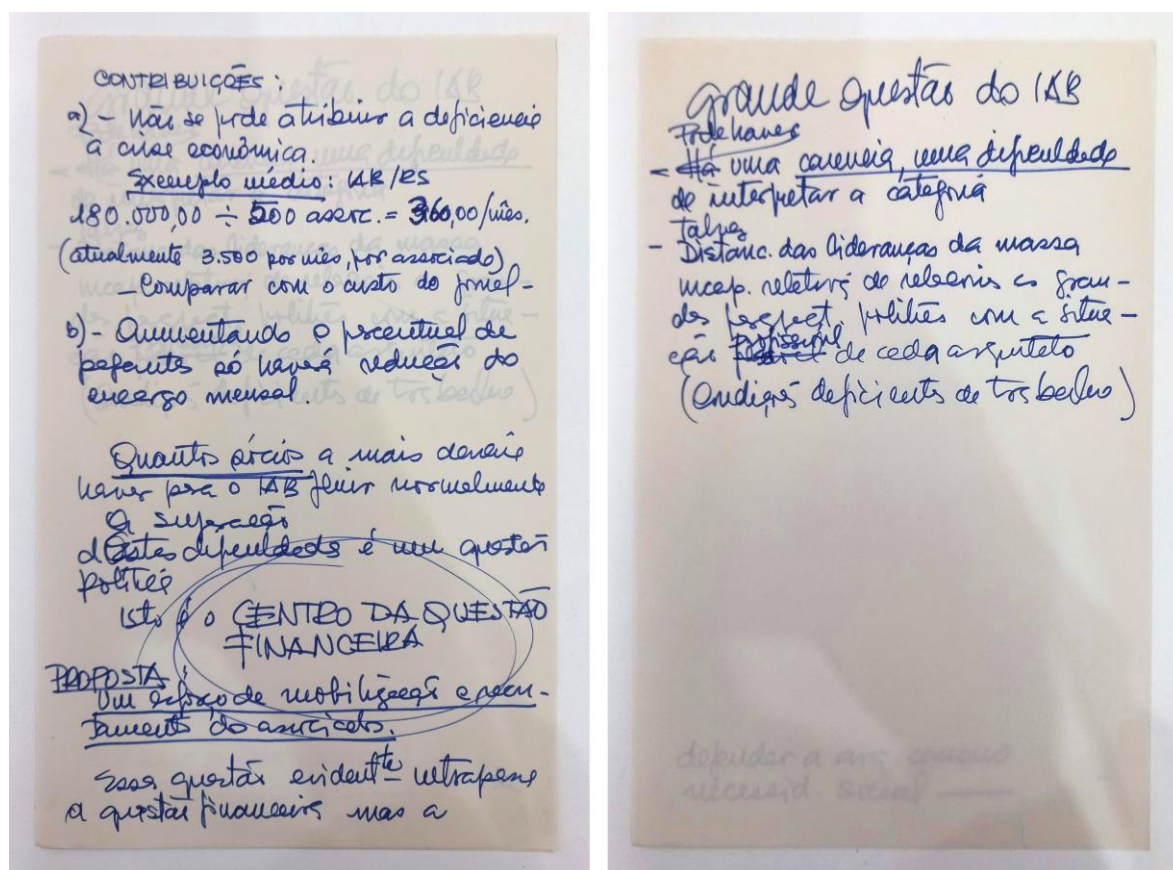 CONTRIBUIÇÕES:
a) - Não se pode atribuir a deficiencia
a crise econômica.
Exemplo médio: IAB/RS
180.000,00 ÷ 500 assoc. = 360,00/mês.
(atualmente 3.500 por mês, por associado)
- Comparar com o custo do jornal -
b) - Aumentando o percentual de
pagantes só haverá redução do
encargo mensal.
Quantos sócios a mais deveria
haver para o IAB fluir normalmente
A superação
destas dificuldades é uma questão
política
Isto é o CENTRO DA QUESTÃO
FINANCEIRA
PROPOSTA:
Um esforço de mobilização e recru-
tamento do associados.
Essa questão evidentte ultrapassa
a questão financeira mas a
grande questão do IAB
Pode haver
- Há uma carencia, uma dificuldade
de interpretar a categoria
talvez
- Distanc. das lideranças da massa
incap. relativa de as gran-
des perspect. politicas com a situa-
ção profissional de cada arquiteto
(Condições deficientes de trabalho)
defender a arq. como
necessid. social